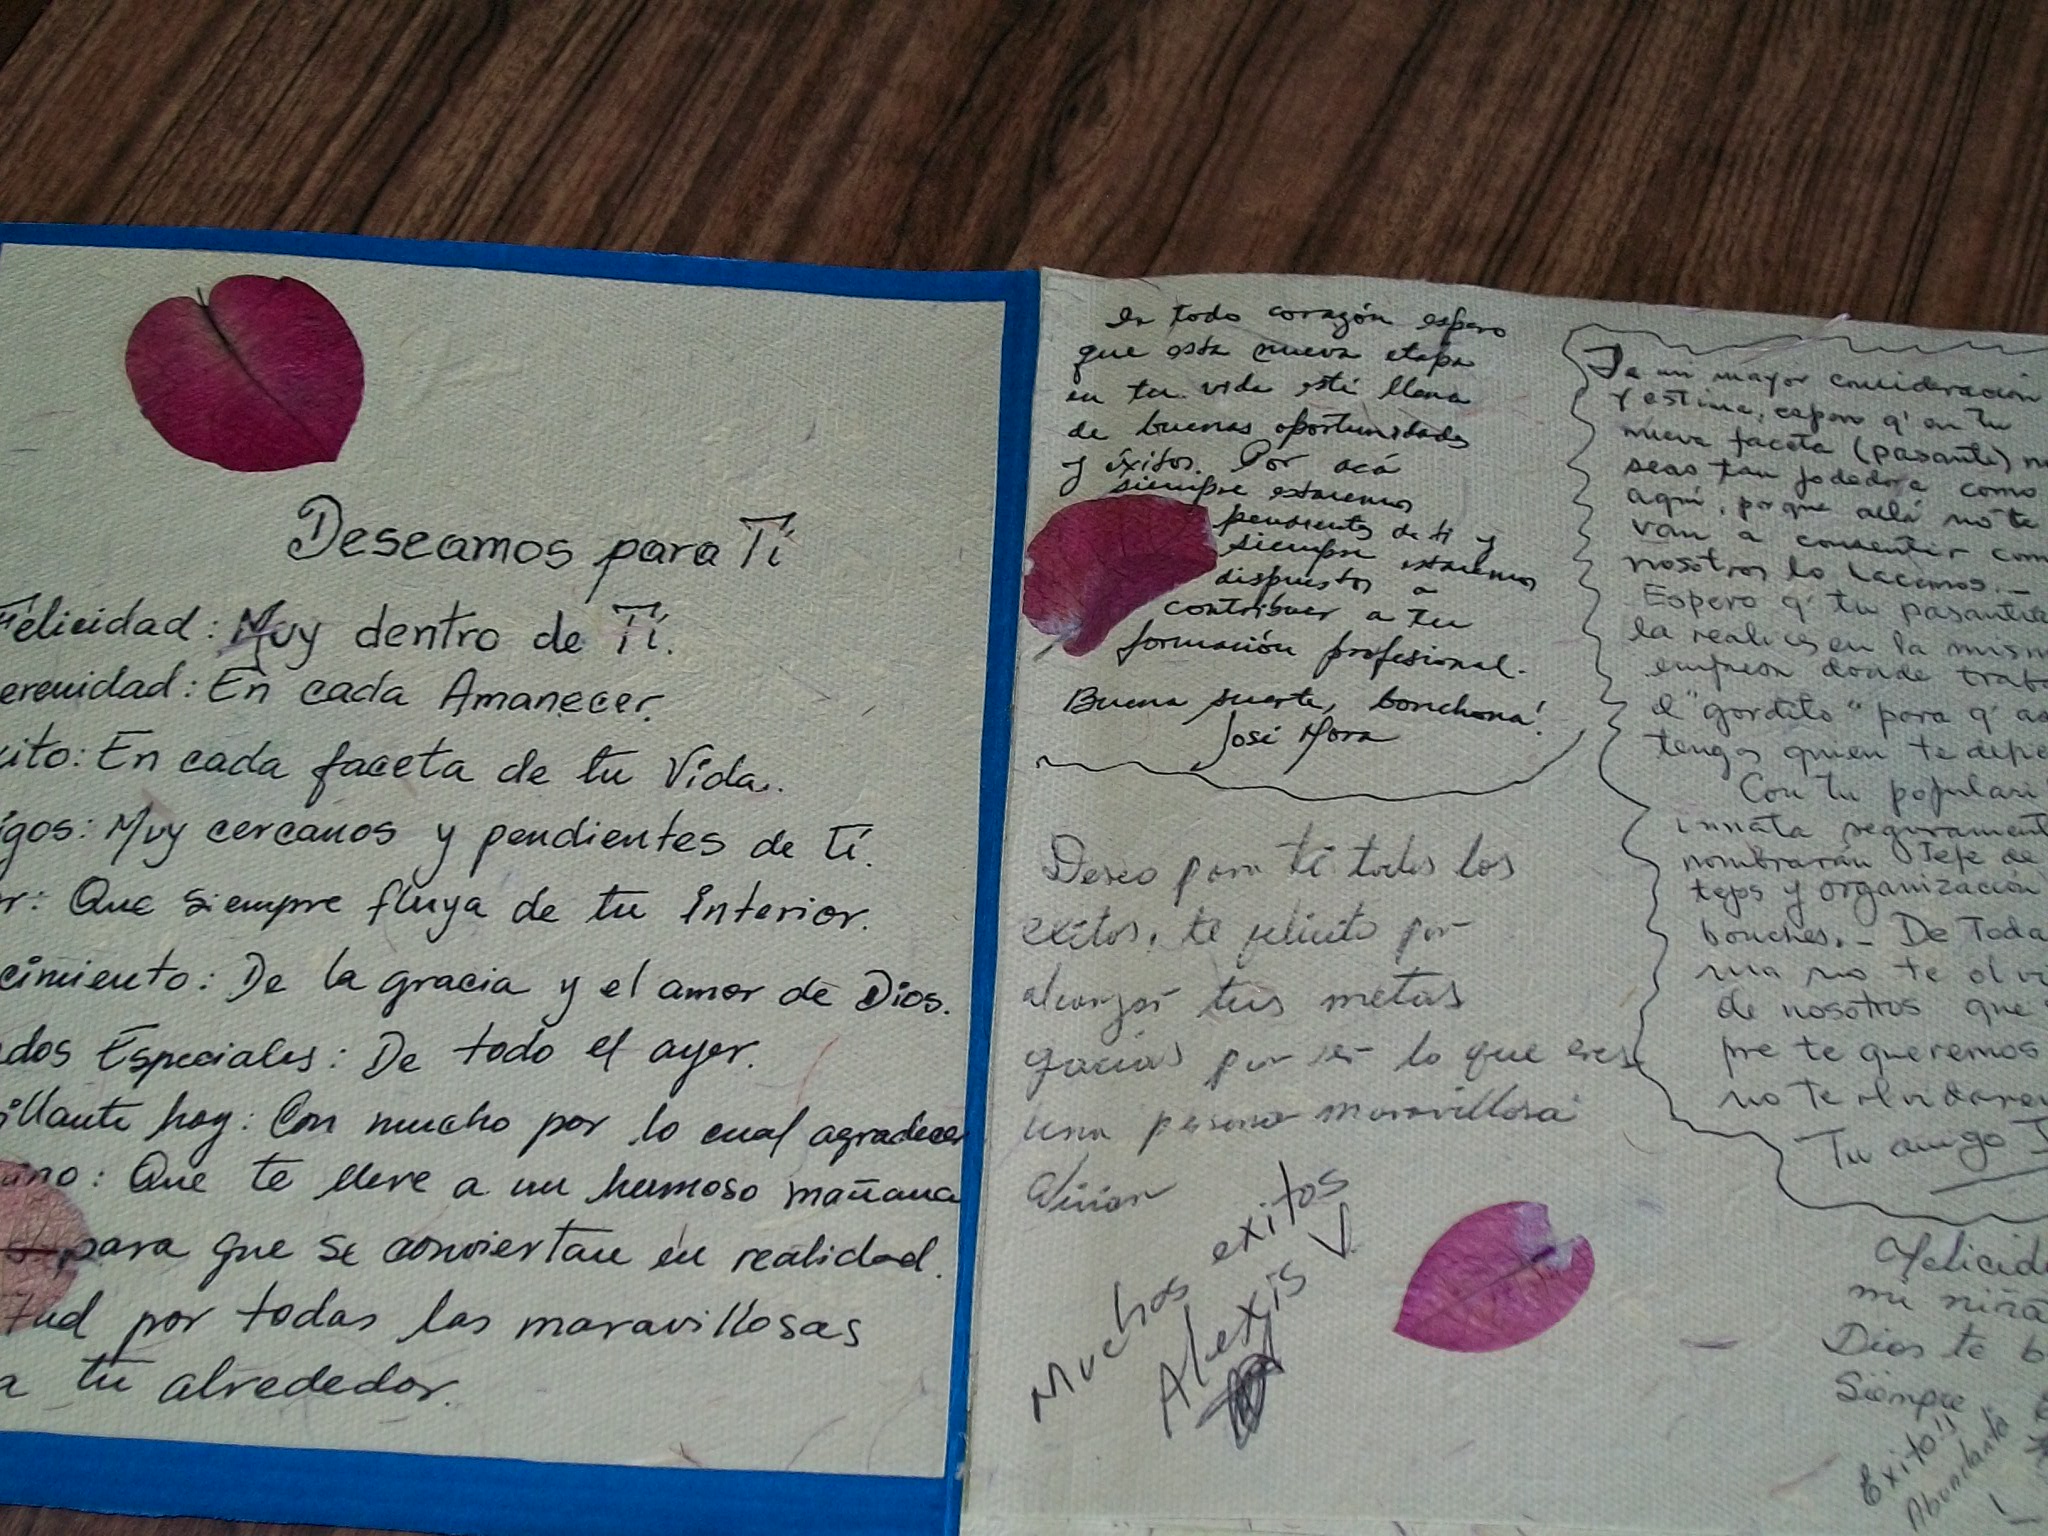 Deseamos para Ti
Felicidad: Muy dentro de Ti.
erenidad: En cada Amanecer.
ito: En cada faceta de tu Vida.
igos: Muy cercanos y pendientes de Ti.
r: Que siempre fluya de tu interior.
cimiento: De la gracia y el amor de Dios.
dos Especiales: De todo el ayer.
illante hoy: Con mucho por lo cual agradecer
ino: Que te lleve a un hermoso mañana
para que se conviertan en realidad.
tud por todas las maravillosas
a tu alrededor.
De todo corazón espero
que esta nueva etapa
en tu vida esté llena
de buenas oportunidades
y éxitos. Por acá
siempre estaremos
pendientes de ti y
siempre estaremos
dispuestos a
contribuir a tu
formación profesional.
Buena suerte, bonchona!
José Mora
Deseo para ti todos los
exitos, te felicito por
alcanzar tus metas
gracias por ser lo que eres
una persona maravillosa
Muchos exitos
Alexis V
De mi mayor consideración
y estima, espero q' en tu
nueva faceta (pasante) no
seas tan jodedora como
aquí, porque allá no te
van a consentir com
nosotros lo hacemos.-
Espero q' tu pasantía
la realices en la mism
empresa donde trab
el "gordito" para q' as
tengas quien te defie
Con tu populari
innata seguramente
nombrarán Jefe de
tejos y organización
bonches.- De Toda
ma no te olvi
de nosotros que
pre te queremos
no te olvidarem
Tu amigo J
Felicid
mi niña
Dios te b
Siempre
Exito!!
Abundante